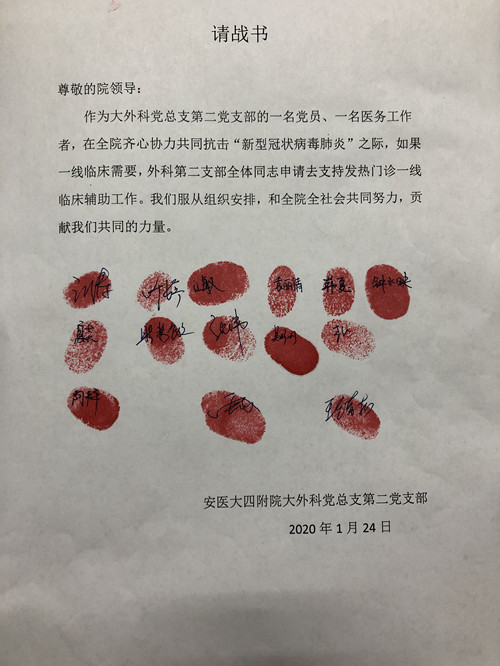 请战书
尊敬的院领导：
作为大外科党总支第二党支部的一名党员、一名医务工作
者，在全院齐心协力共同抗击“新型冠状病毒肺炎”之际，如果
一线临床需要，外科第二支部全体同志申请去支持发热门诊一线
临床辅助工作。我们服从组织安排，和全院全社会共同努力，贡
献我们共同的力量。
安医大四附院大外科党总支第二党支部
2020 年 1 月 24 日